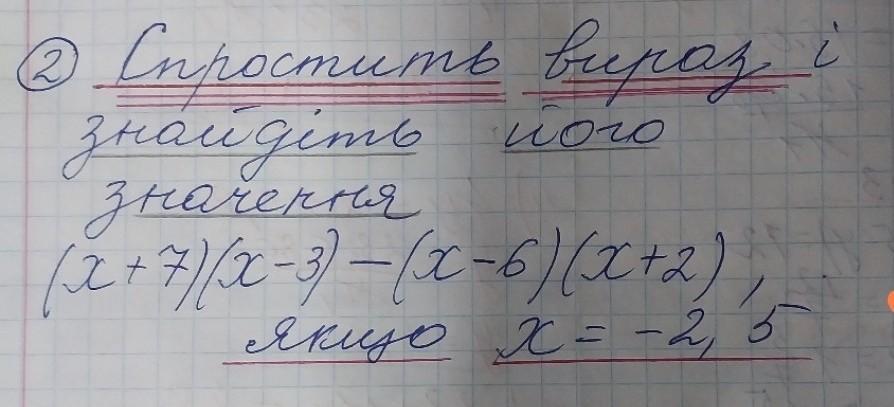 ② Спростить вираз і
знайдіть його
значення
(x+7)(x-3)-(x-6)(x+2),
якщо x = -2,5